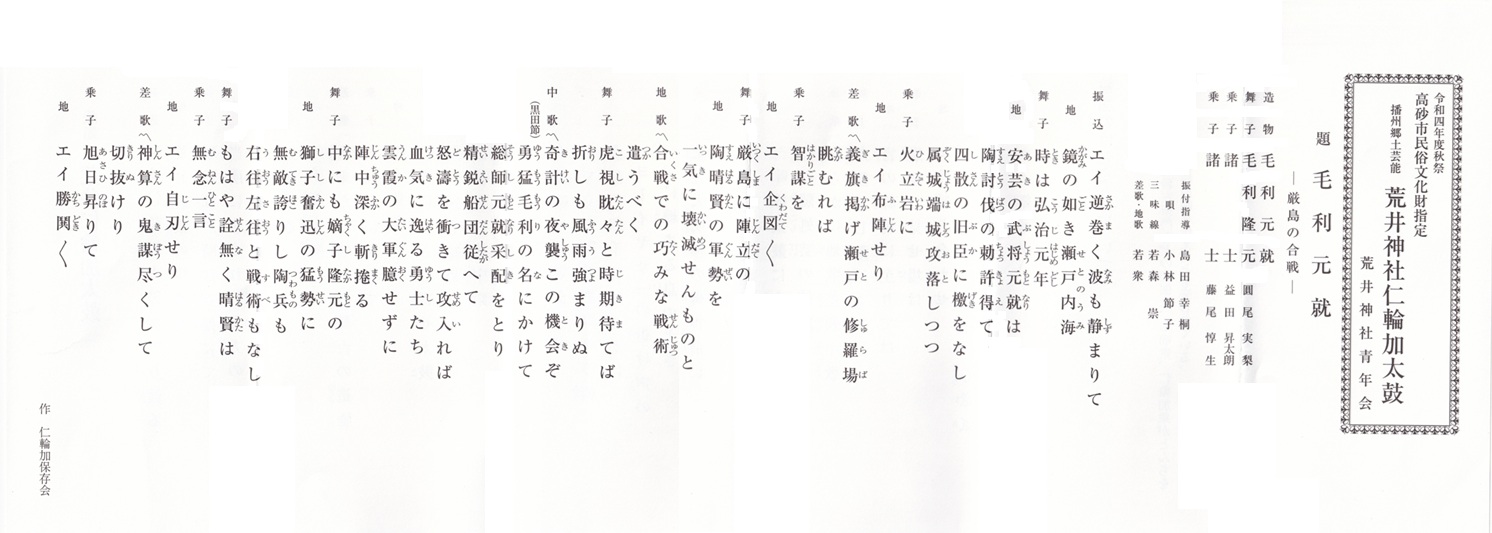 令和四年度秋祭
高砂市民俗文化財指定
播州郷土芸能 荒井神社仁輪加太鼓
荒井神社青年会
題 毛利元就
―厳島の合戦―
造物 毛利元就
舞子 毛利隆元 圓尾実梨
乗子 諸士 益田昇太朗
乗子 諸士 藤尾惇生
振付指導 島田幸桐
唄 小林節子
三味線 若森崇
差歌・地歌 若衆
振込 エイ逆巻く波も静まりて
地 鏡の如き瀬戸内海
舞子 時は弘治元年
地 安芸の武将元就は
陶討伐の勅許得て
四散の旧臣に檄をなし
属城端城攻落しつつ
乗子 火立岩に
地 エイ布陣せり
差歌〽義旗掲げ瀬戸の修羅場
眺むれば
乗子 智謀を
地 エイ企図〱
舞子 厳島に陣立の
地 陶晴賢の軍勢を
一気に壊滅せんものと
地歌〽合戦での巧みな戦術
遣うべく
舞子 虎視眈々と時期待てば
折しも風雨強まりぬ
中歌〽奇計の夜襲この機会ぞ
(黒田節) 勇猛毛利の名にかけて
総師元就采配をとり
精鋭船団従へて
怒濤を衝きて攻入れば
血気に逸る勇士たち
雲霞の大軍臆せずに
陣中深く斬捲る
舞子 中にも嫡子隆元の
地 獅子奮迅の猛勢に
無敵誇りし陶兵も
右往左往と戦術もなし
舞子 もはや詮無く晴賢は
乗子 無念一言
地 エイ自刃せり
差歌〽神算の鬼謀尽くして
切抜けり
乗子 旭日昇りて
地 エイ勝鬨〱
作 仁輪加保存会